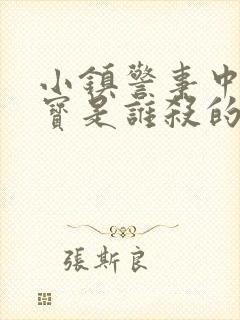 小鎮警事中
寶是誰殺的
張斯良